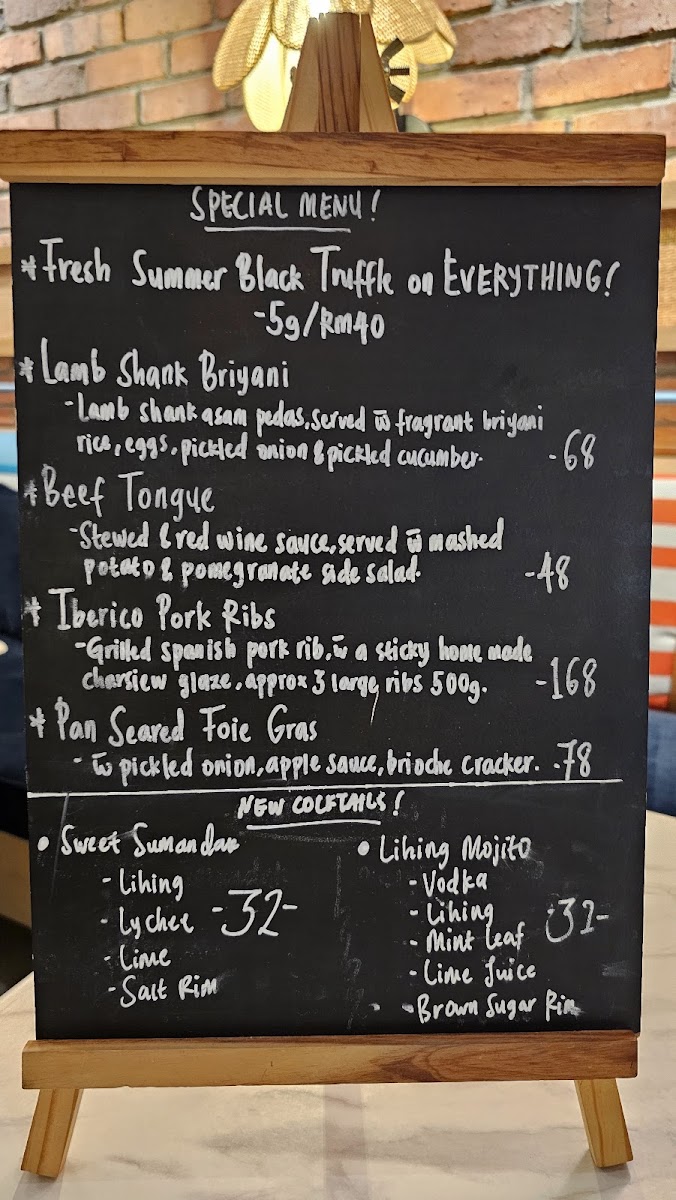 SPECIAL MENU!
* Fresh Summer Black Truffle on EVERYTHING!
-5g/RM40
* Lamb Shank Briyani
- Lamb shank asam pedas, served w̄ fragrant briyani
rice, eggs, pickled onion & pickled cucumber. -68
* Beef Tongue
- Stewed & red wine sauce, served w̄ mashed
potato & pomegranate side salad. -48
* Iberico Pork Ribs
- Grilled spanish pork rib, w̄ a sticky home made
charsiew glaze, approx 3 large ribs 500g. -168
* Pan Seared Foie Gras
- w̄ pickled onion, apple sauce, brioche cracker. -78
NEW COCKTAILS!
• Sweet Sumandak
- Lihing
- Lychee -32-
- Lime
- Salt Rim
• Lihing Mojito
- Vodka
- Lihing
- Mint Leaf -32-
- Lime Juice
- Brown Sugar Rim